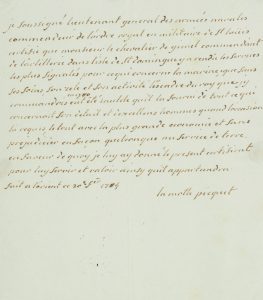 je soussigné lieutenant general des armées navales
commandeur de l'ordre royal en militaire de St louis
certifie que monsieur le chevalier de gimel commandant
de lartillerie dans lisle de St domingue a rendu les services
les plus signalés pour ce qui concerne la marine que sans
ses soins son zele et son activité lescadre du roy que jy
commandois eut été inutile quil la fourni de tout ce qui
concernoit son détail et dexcellens hommes quand loccasion
la requis, le tout avec la plus grande economie et sans
prejudicier en façon quelconque au service de terre
en faveur de quoy je luy ay donné le present certificat
pour luy servir et valoir ainsy quil appartiendra
fait a lorient ce 20e 1784
la motte picquet